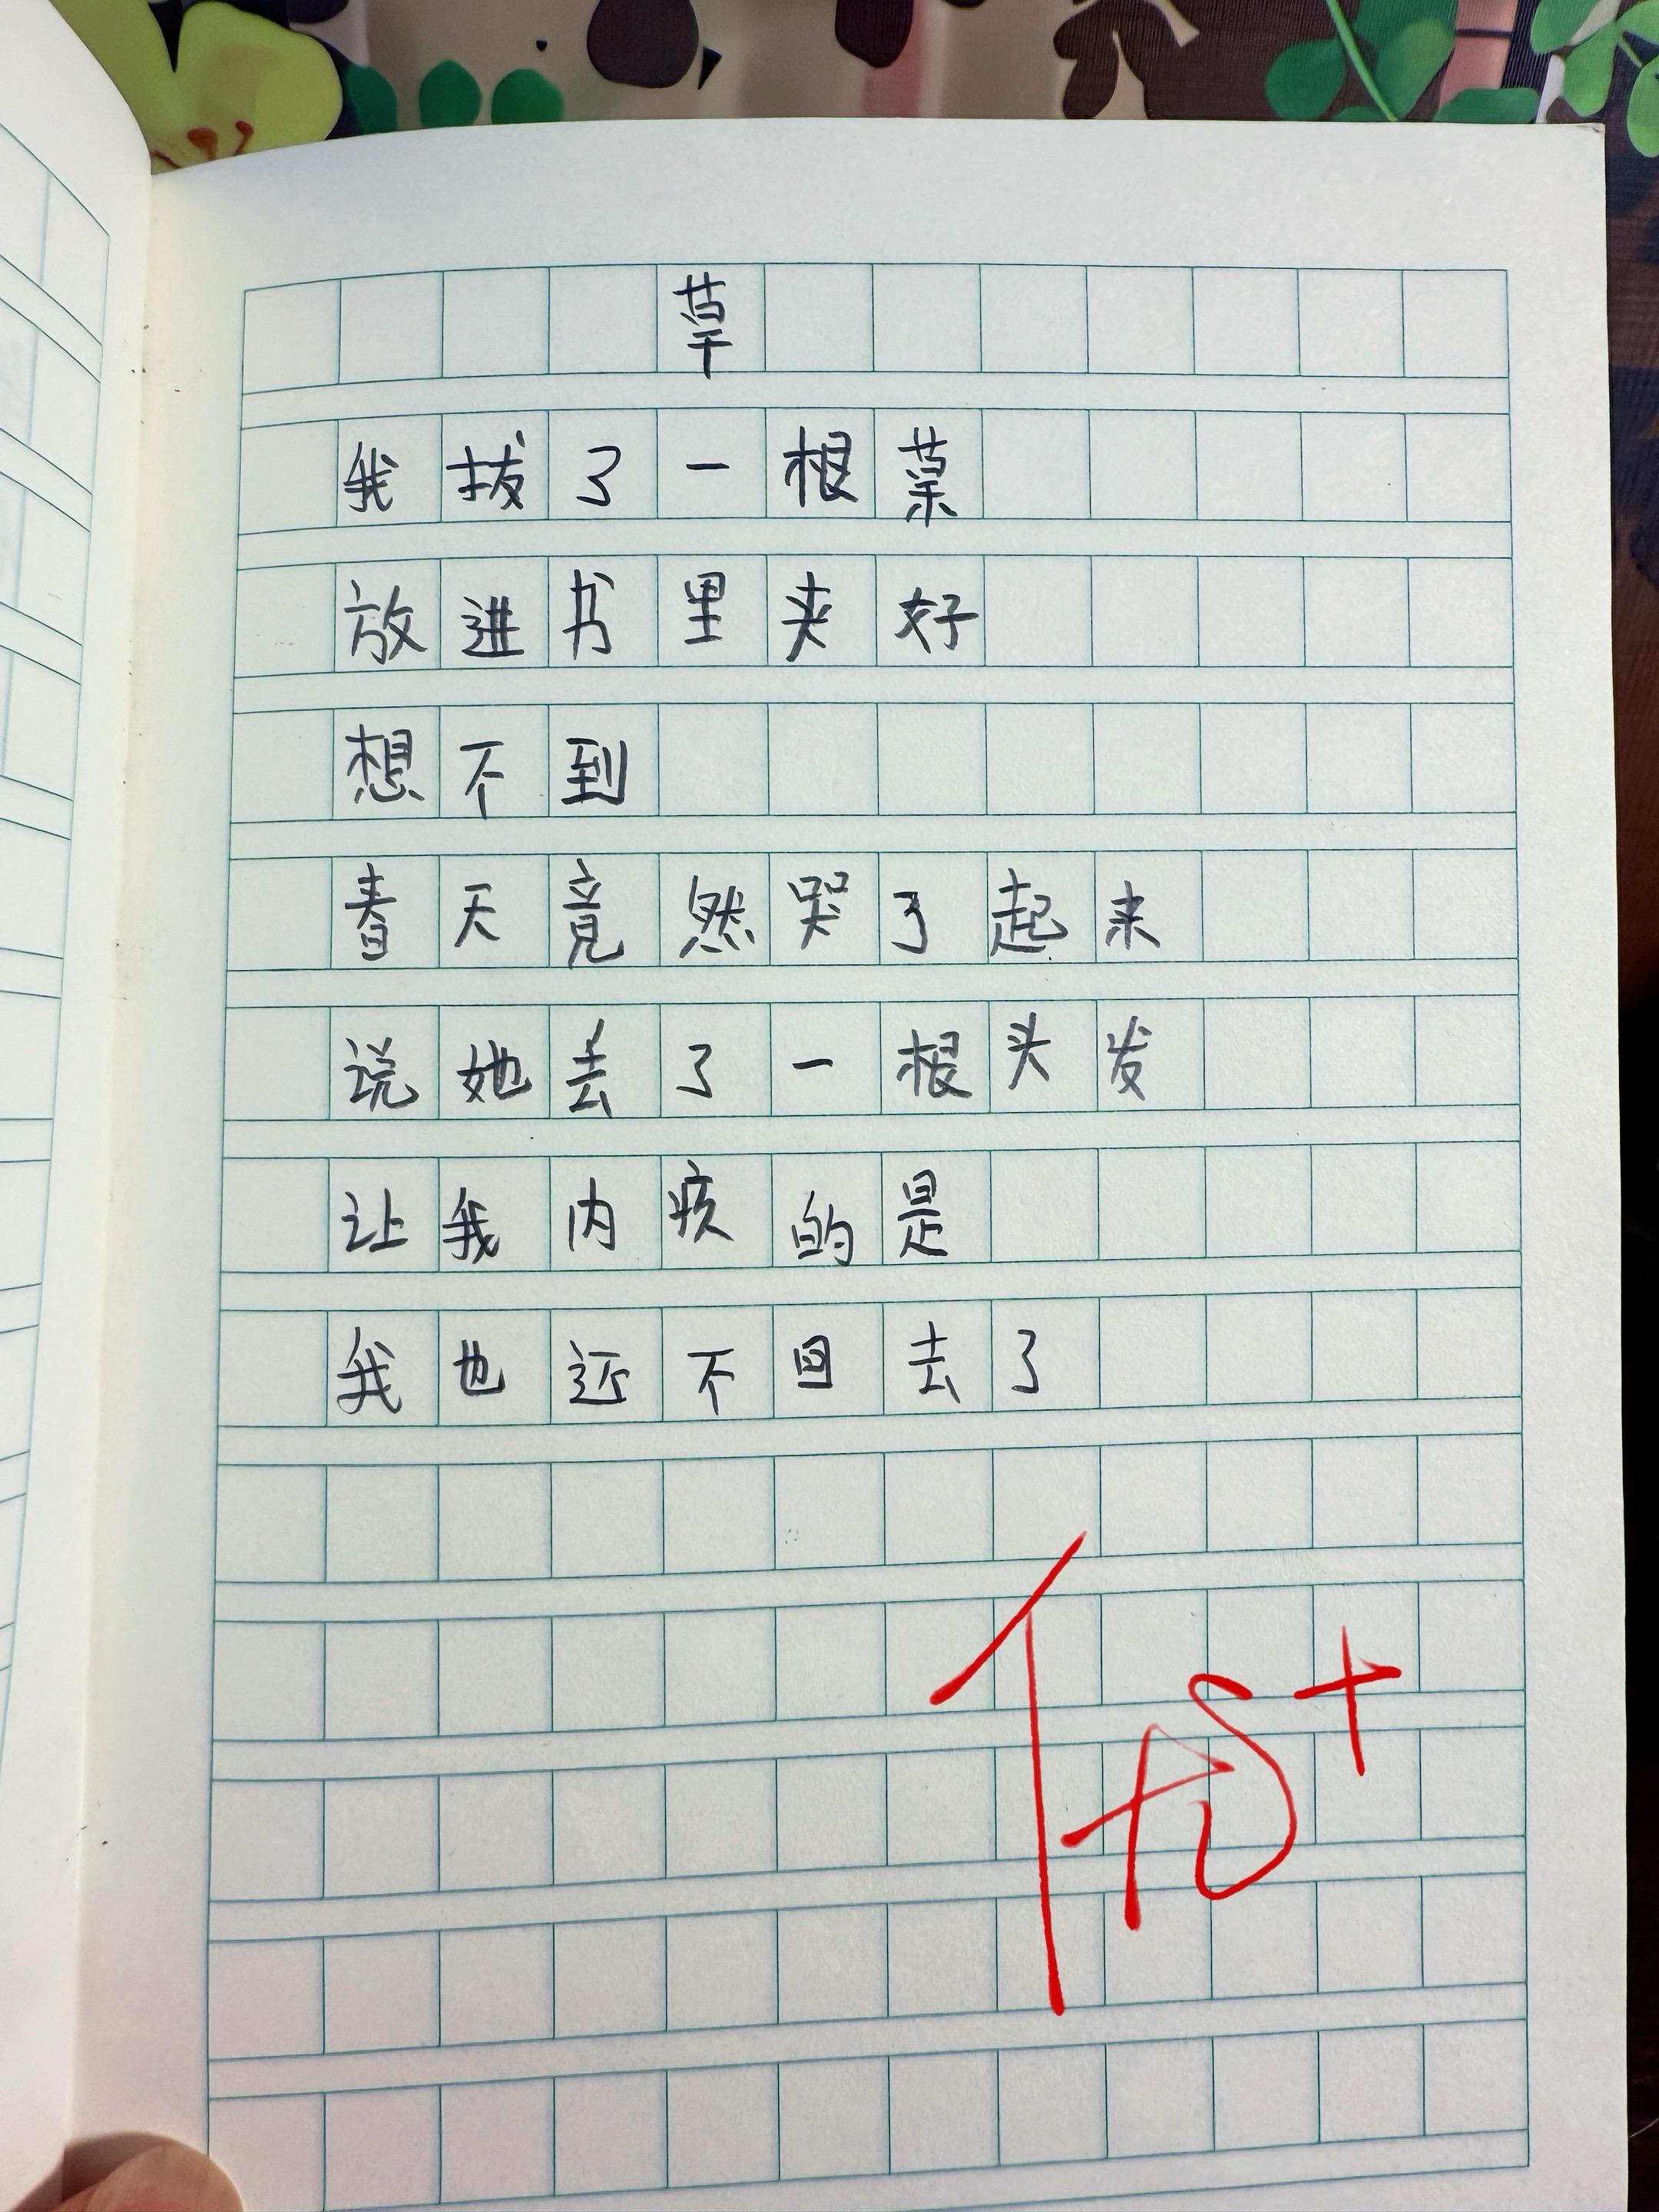 草
我拔了一根草
放进书里夹好
想不到
春天竟然哭了起来
说她丢了一根头发
让我内疚的是
我也还不回去了